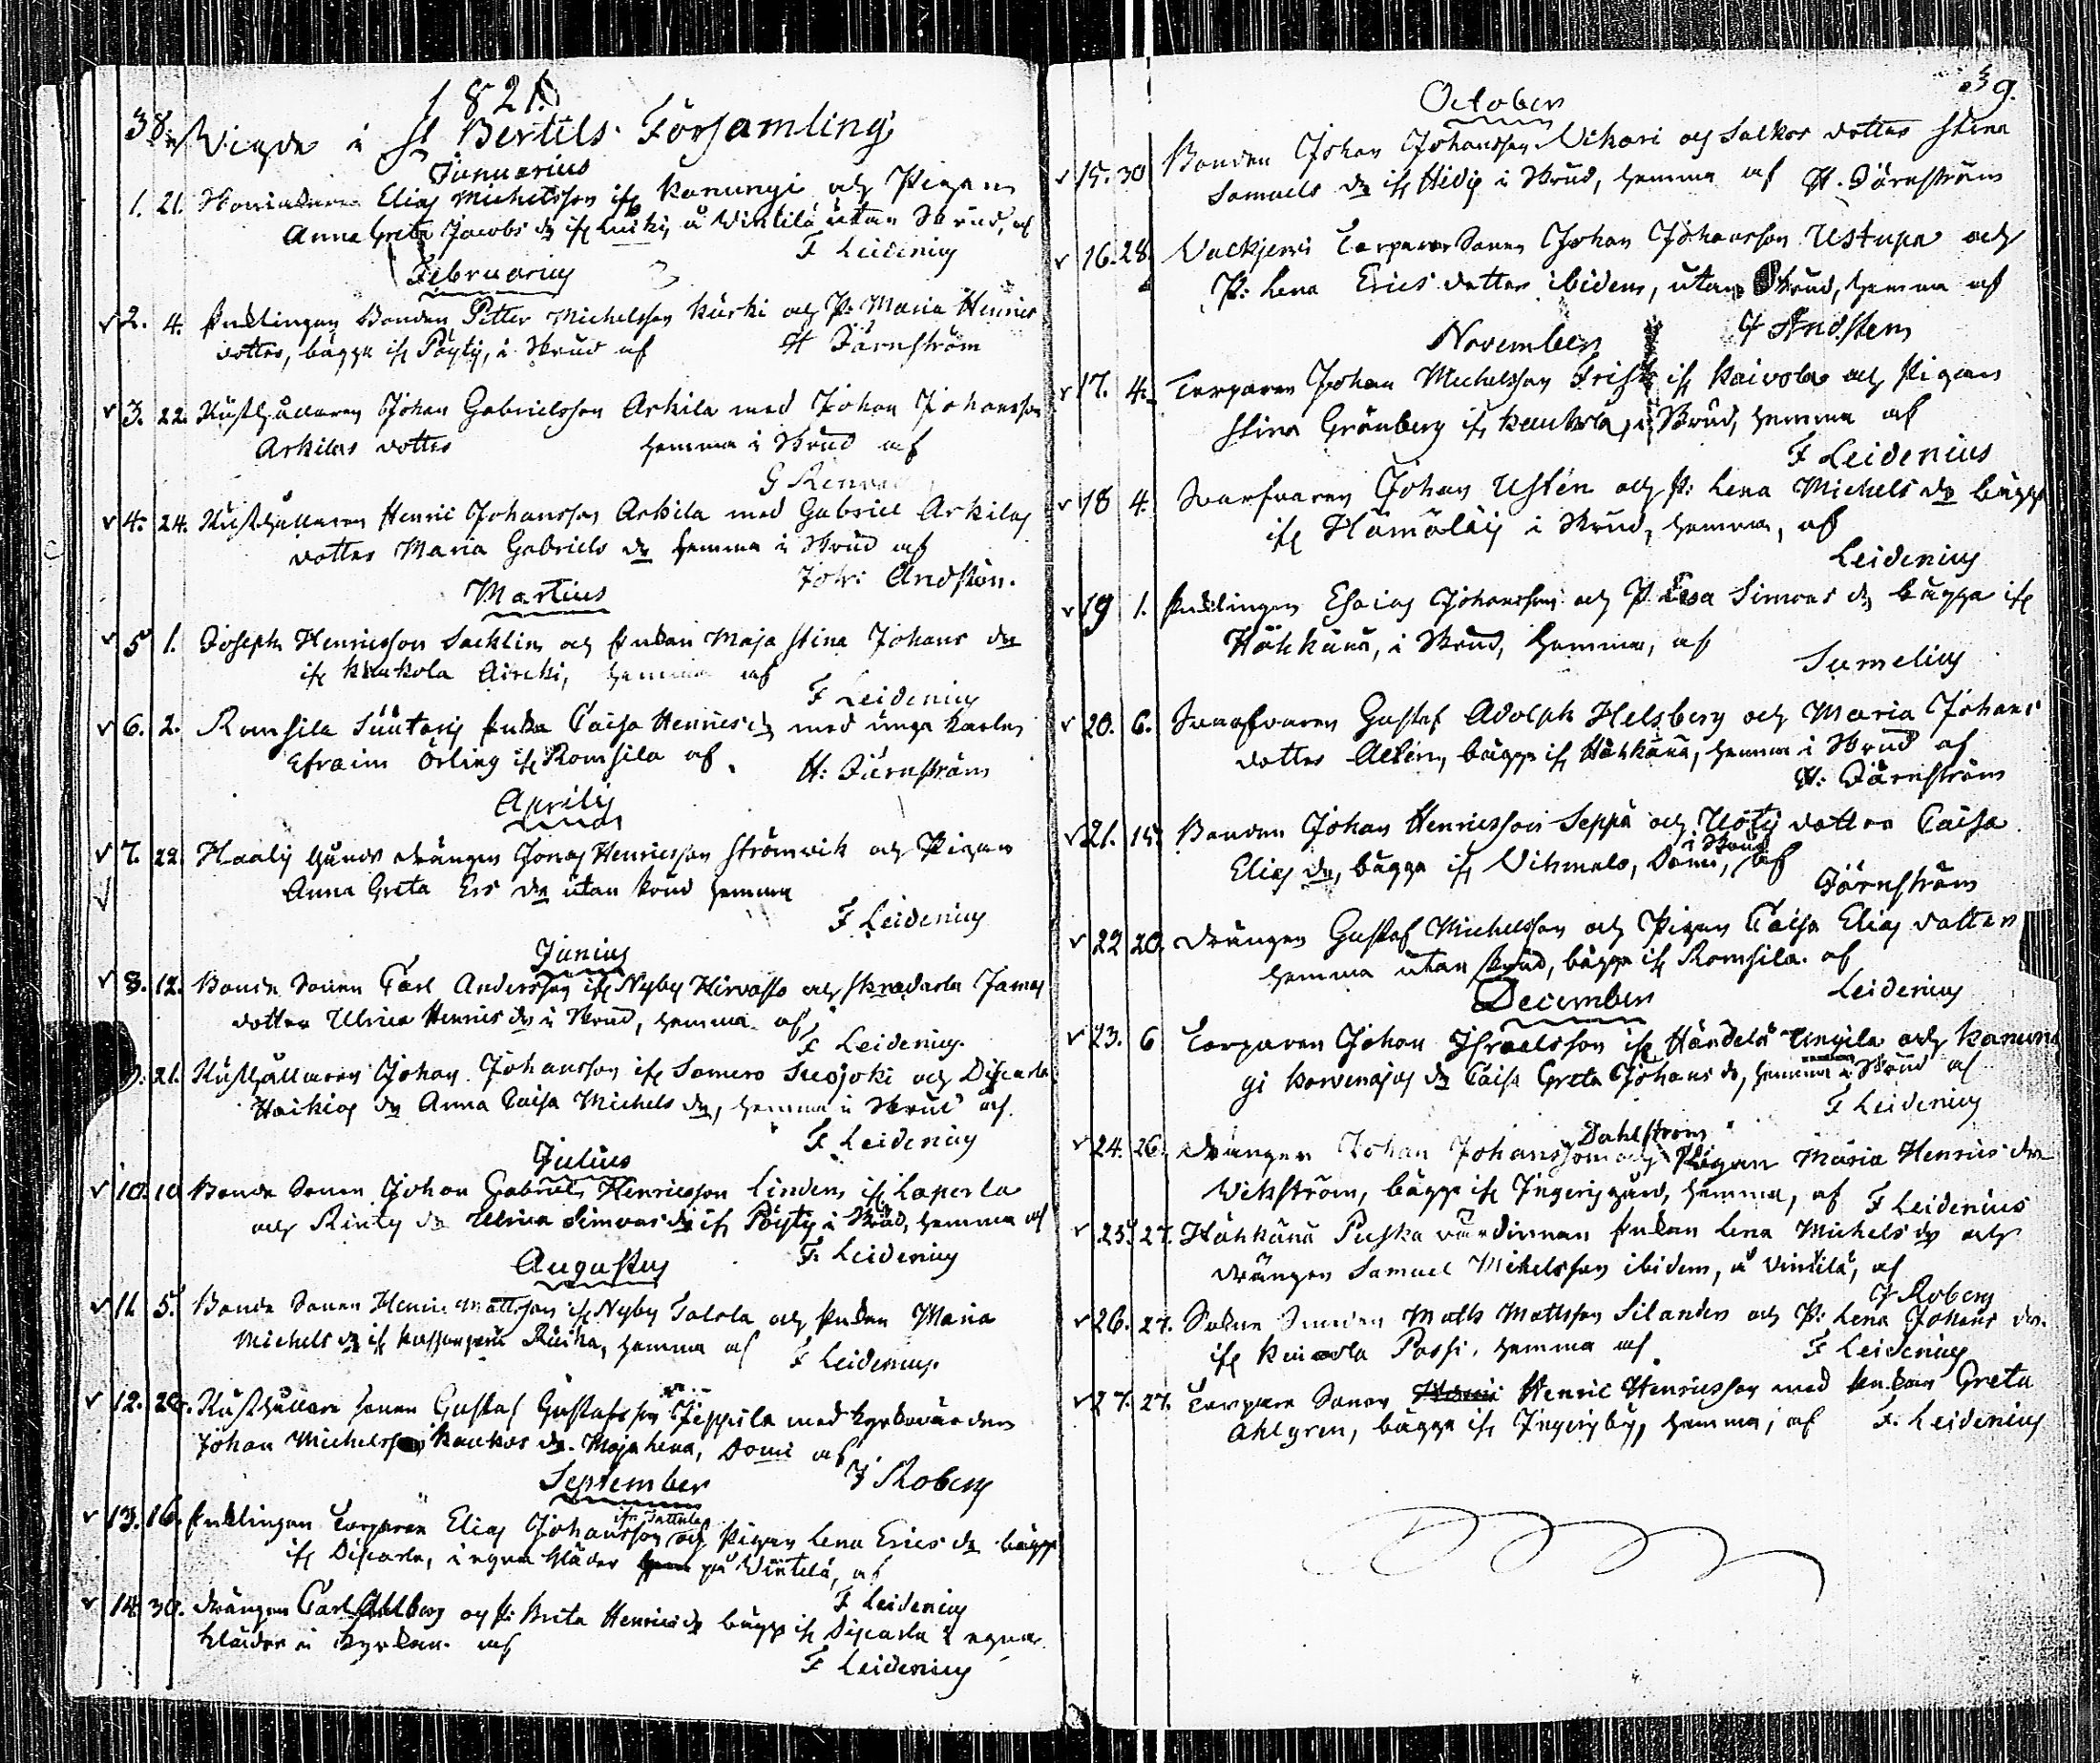 1821.
38. Vigde i St Bertils Församling
Januarius
1. 21. Elias Michelsson ifr Kanungi och Pigan
Anna Greta Jacobs dr ifr å Vintilä utan Skrud, af
F Leidenius
Februarius
2. 4. Enklingen Bonden Petter Michelsson Kurki och P: Maria Henrics
dotter, bägge ifr Pöytiö, i Skrud af H Järnström
3. 22. Rusthållaren Johan Gabrielsson Arkila med Johan Johansson
Arkilas dotter hemma i Skrud af
G Renvall
4. 24. Rusthållaren Henric Johansson Arkila med Gabriel Arkilas
dotter Maria Gabriels dr hemma i Skrud af
Joh: Andstén.
Martius
5 1. Joseph Henricsson Sacklin och Enkan Maja Stina Johans dr
ifr Kaukola hemma af
F Leidenius
6. 2. Romsila Suutaris Enka Caisa Henrics dr med unga Karlen
Efraim Örling ifr Romsila af. H: Järnström
Aprilis
7. 22. Haalis Gårds drängen Jonas Henricsson Strömvik och Pigan
Anna Greta Ers dr utan skrud hemma
F Leidenius
Junius
8. 12. Bonde Sonen Carl Andersson ifr Nyby Hirvasto och Skradarla
dotter Ulrica Henrics dr i Skrud, hemma af
F Leidenius.
9. 21. Rusthållaren Johan Johansson ifr Somero Suojoki och Discarla
Haikios dr Anna Caisa Michels dr, hemma i Skrud af
F. Leidenius
Julius
10. 10 Bonde Sonen Johan Gabriel Henricsson Linden ifr Laperla
och Rinty dr Ulrica Simons dr ifr Pöytiö i Skrud, hemma af
F. Leidenius
Augustus
11. 5. Bonde Sonen Henric Mattsson ifr Nyby Talola och Enkan Maria
Michels dr ifr hemma af F Leidenius.
12. Rusthållare Sonen Gustaf Gustafsson Jeppila med Kyrkovärden
Johan Michelsson Kaukos dr. Maja Lena, Domi af
J Roberg
September
13. 16. Enklingen Torparen Elias Johansson ifr Tattula och Pigan Lena Erics dr bägge
ifr Discarla, i egna kläder på Vintilä, af
F Leidenius
14. 30. Drängen Carl Ahlberg och P: Brita Henrics dr bägge ifr Discarla i egna
kläder i Kyrkan af
F Leidenius
39.
October
15. 30 Bonden Johan Johansson Vihari och Salkos dotter Stina
Samuels dr ifr i Skrud, hemma af H. Järnström
16. 28. Torpare Sonen Johan Johansson Ustupa och
P: Lena Erics dotter ibidem, utan Skrud, hemma af
J Andstén
November
17. 4. Torparen Johan Michelsson Frisk ifr Kaivola och Pigan
Stina Grönberg ifr Kaukola, i Skrud, hemma af
F Leidenius
18 4. Svarfvaren Johan Ustén och P: Lena Michels dr bägge
ifr Hämäläis i Skrud, hemma, af
Leidenius
19 1. Enklingen Esaias Johansson och P. Lisa Simons dr bägge ifr
Höhkänä, i Skrud, hemma, af
Sumelius
20. 6. Svarfvaren Gustaf Adolph Helsberg och Maria Johans
dotter bägge ifr Höhkänä, hemma i Skrud af
H: Järnström
21. 15. Bonden Johan Henricsson Seppä och Uotis dotter Caisa
Elias dr, bägge ifr Vihmalo, Domi, i Skrud af
Järnström
22 20. Drängen Gustaf Michelsson och Pigan Caisa Elias dotter
hemma utan Skrud, bägge ifr Romsila. af
Leidenius
December
23. 6 Torparen Johan Israelsson ifr Händelä och Kanun
gi dr Caisa Greta Johans dr, hemma i Skrud af
F Leidenius
24. 26. Drängen Johan Johansson Dahlström och Pigan Maria Henrics dr
Vikström, bägge ifr Ingeris gård, hemma, af F Leidenius
25. 27. Höhkänä Puska värdinnan Enkan Lena Michels dr och
drängen Samuel Mikelsson ibidem, å Vintilä, af
J Roberg
26. 27. Sonen Matts Mattsson Silander och P: Lena Johans dr.
ifr Passi. hemma af F Leidenius
27. 27. Torpare Sonen Henric Henricsson med Enkan Greta
Ahlgren, bägge ifr Ingerisby, hemma, af F. Leidenius